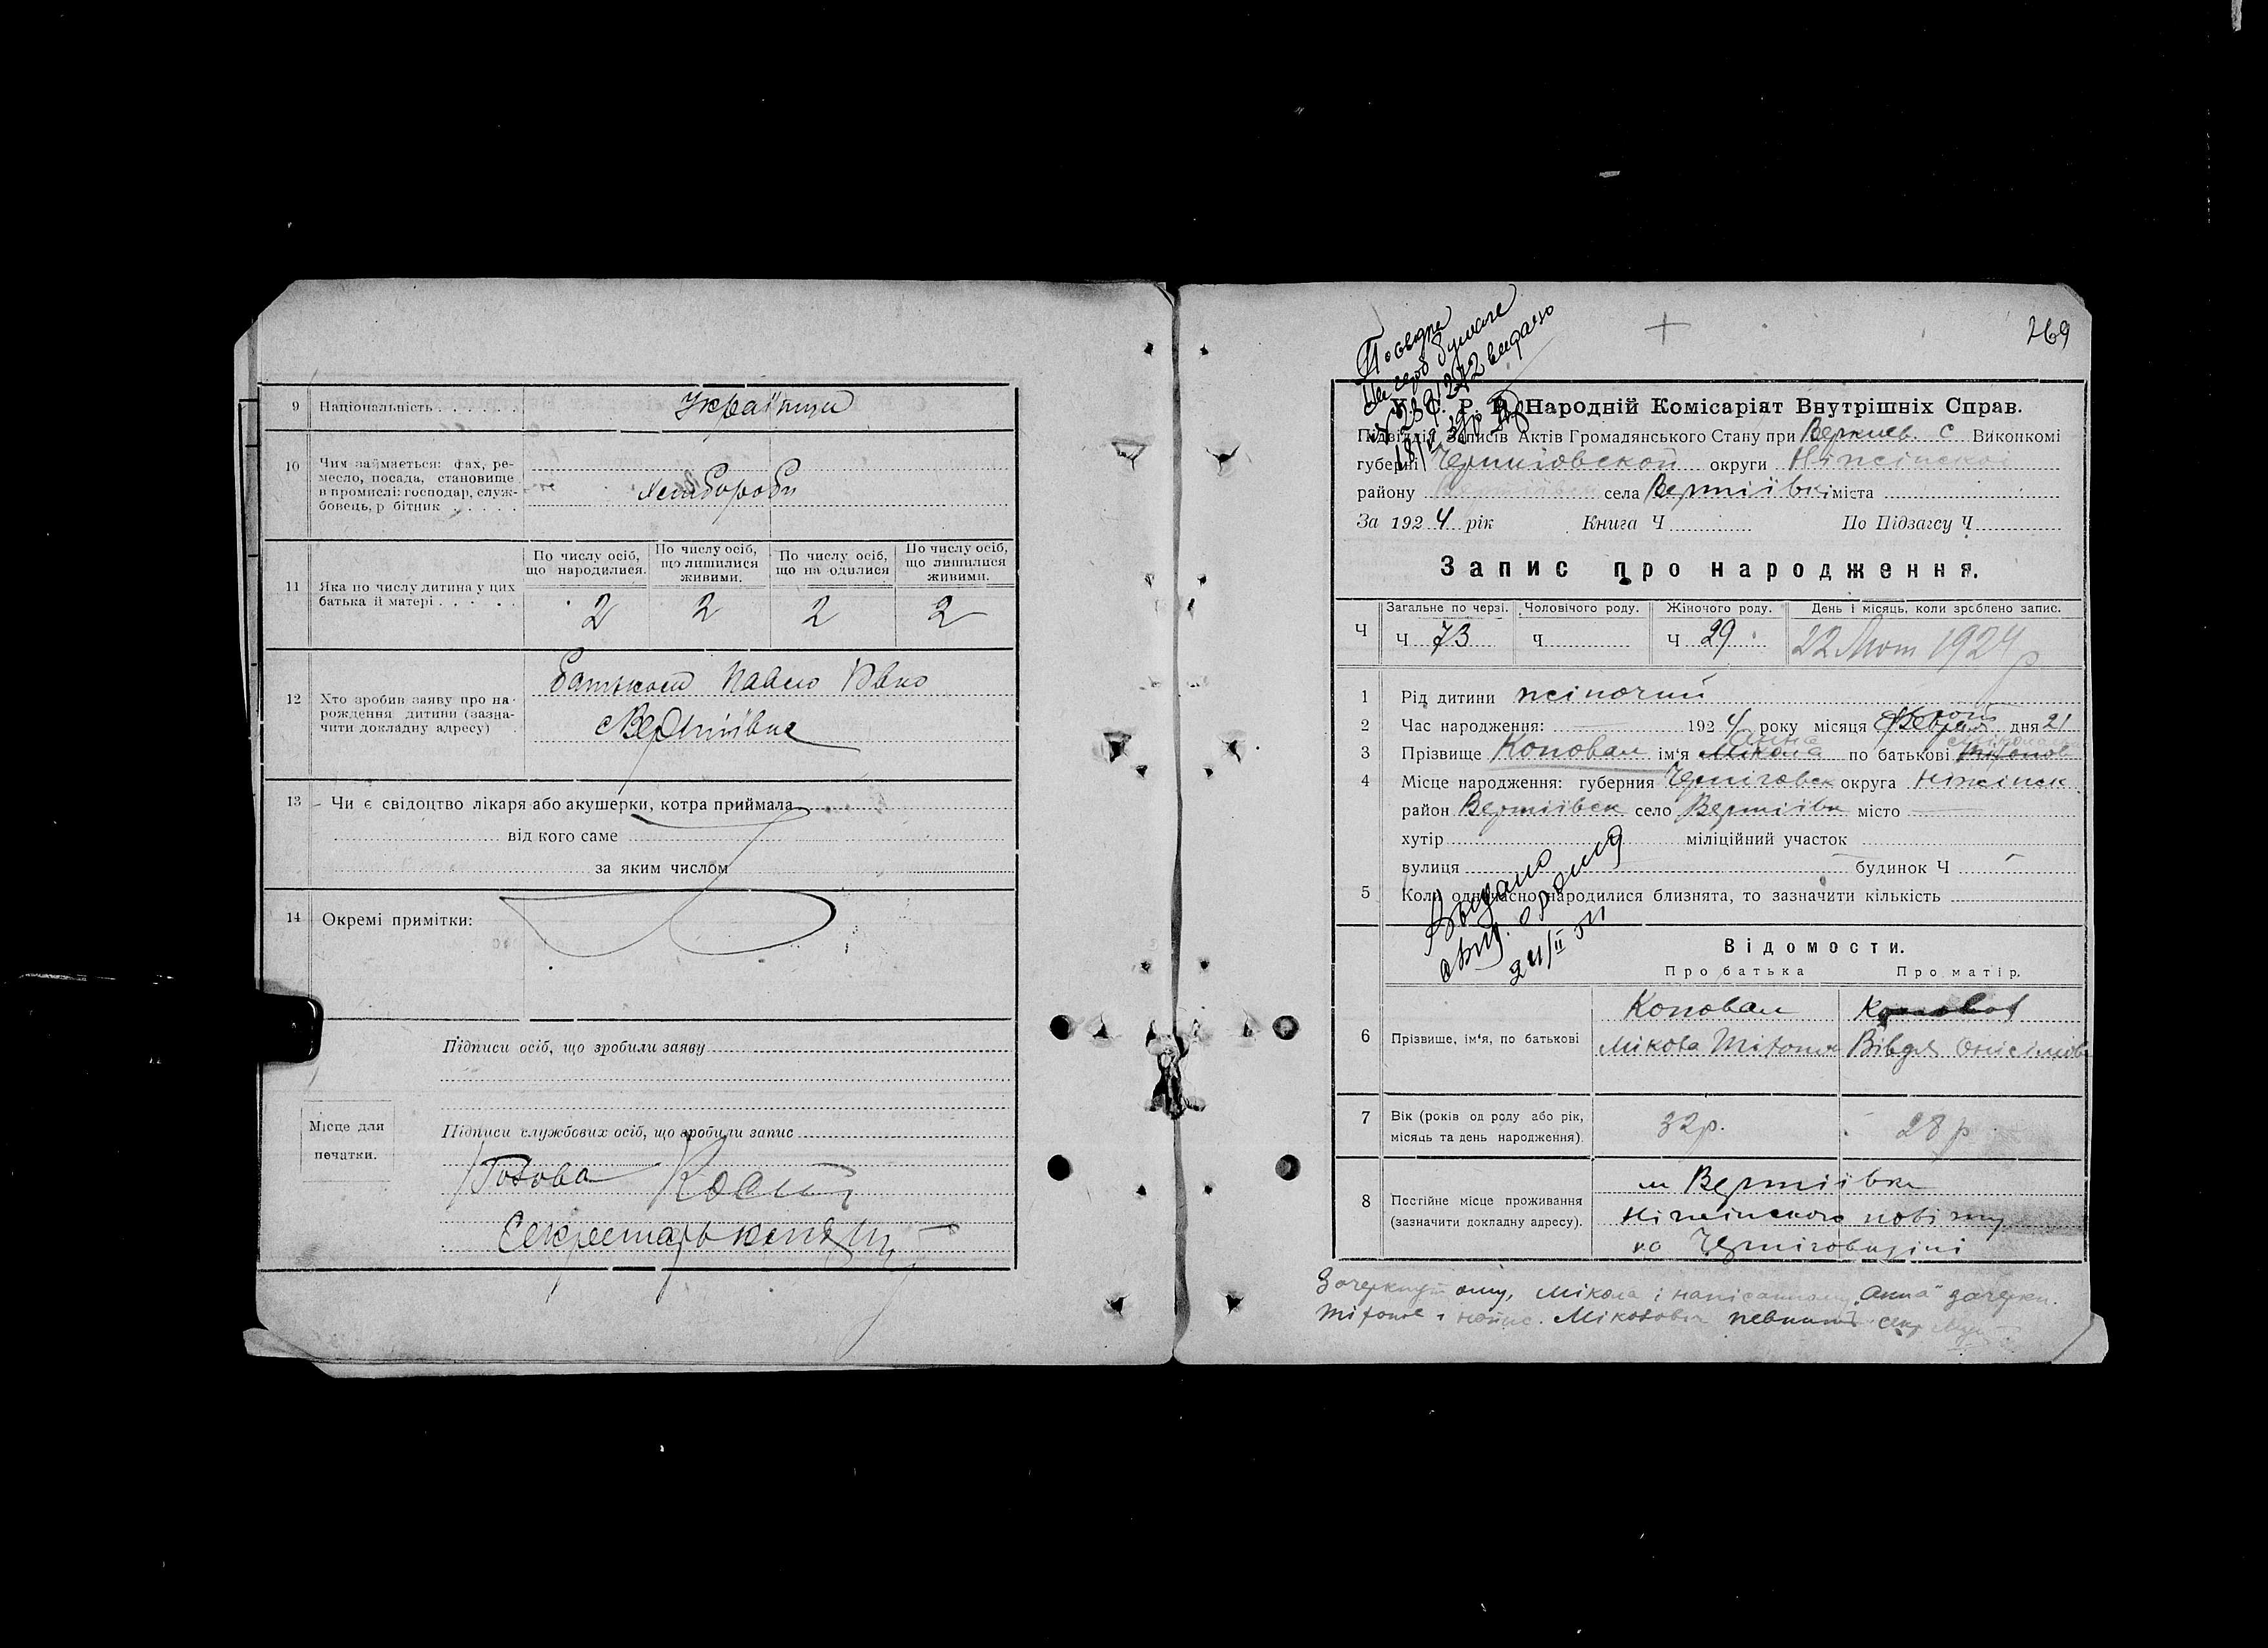 9 Національність Українци
10 Чим займається: фах, ре-
месло, посада, становище
в промислі: господар, служ-
бовець, р бітник
хлибороби
11 Яка по числу дитина у цих
батька й матері
По числу осіб, що народилися.
По числу осіб, що лишилися живими.
По числу осіб, що на одилися
По числу осіб, що лишилися живими.
2 2 2 2
12 Хто зробив заяву про на-
рождення дитини (зазна-
чити докладну адресу)
Павло
с Вертіївка
13 Чи є свідоцтво лікаря або акушерки, котра приймала
від кого саме
за яким числом
14 Окремі примітки:
Підписи осіб, що зробили заяву
Місце для
печатки.
Підписи службових осіб, що зробили запис
Голова
Секретарь
269
У. С. Р. Р. Народній Комісаріят Внутрішніх Справ.
Підвідділ Записів Актів Громадянського Стану при Вєркиев. С Виконкомі
губерні Черниговской округи Ніжінскої
району села Вертіївка міста
За 1924 рік Книга Ч По Підзагсу Ч
Запис про народження.
Ч
Загальне по черзі. Чоловічого роду. Жіночого роду. День і місяць, коли зроблено запис.
Ч 73 Ч Ч 29 22 Лют 1924 р
1 Рід дитини жіночий
2 Час народження: 1924 року місяця дня 21
3 Прізвище Коновал ім'я Мікола Анна по батькові Тітонов
4 Місце народження: губерния Черніговск округа Ніжінск
район Вертіївск село Вертіївк місто
хутір міліційний участок
вулиця будинок Ч
5 Коли одночасно народилися близнята, то зазначити кількість
Выдано
24/II
Відомости.
Про батька Про матір.
6 Прізвище, ім'я, по батькові
Коновал
Мікола Вівдя Онісімов
7 Вік (років од роду або рік,
місяць та день народження).
32 р. 28 р
8 Постійне місце проживання
(зазначити докладну адресу).
м Вертіївка
Ніжінского повіту
на Черніговщіні
Зачеркнутому, Мікола і написанному "Анна" зачеркн.